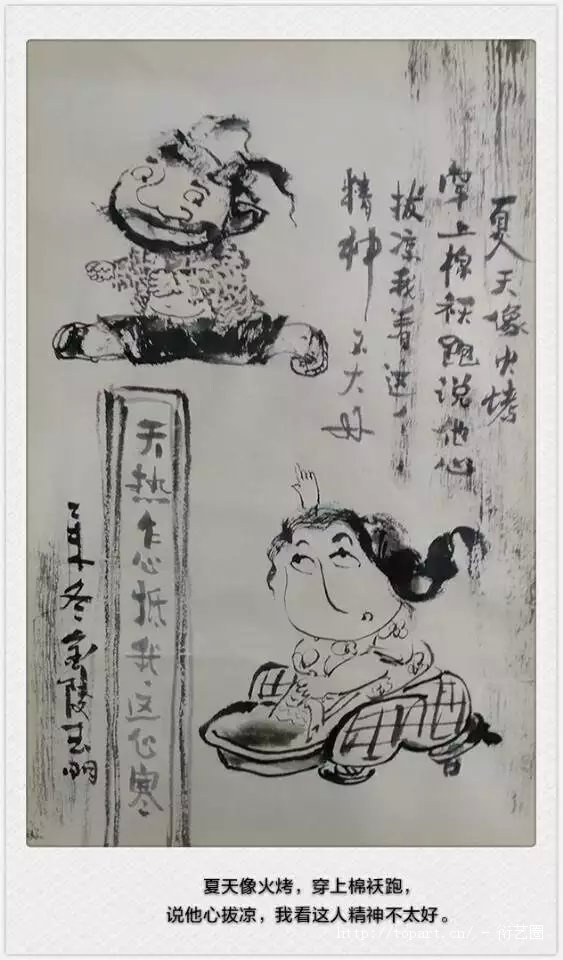 夏天像火烤
穿上棉袄跑说他心
拔凉我看这人
精神不太好
天热乍心抵我这心寒
冬金陵
夏天像火烤，穿上棉袄跑，
说他心拔凉，我看这人精神不太好。
http://topart.cn/ - 衍艺圈